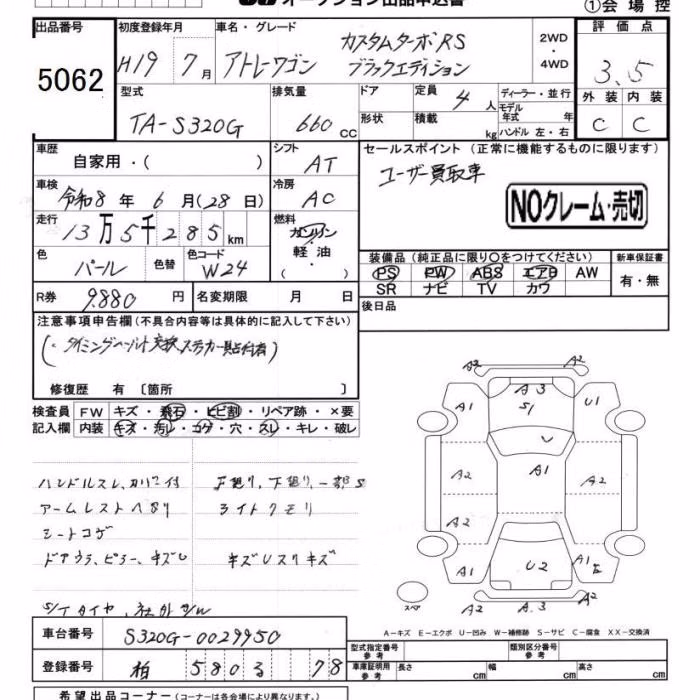 オークション出品申込書
①会場控
出品番号
5062
初度登録年月
H19 7月
車名・グレード
アトレーワゴン
カスタムターボRS
ブラックエディション
2WD
・
4WD
評価点
3.5
外装 内装
C C
型式
TA-S320G
排気量
660 cc
ドア
形状
定員
4 人
積載
kg
ディーラー・並行
モデル
年式 年
ハンドル 左・右
車歴
自家用・( )
シフト
AT
セールスポイント (正常に機能するものに限ります)
ユーザー買取車
NOクレーム・売切
車検
令和8年 6月(28日)
冷房
AC
走行
13万5千285km
燃料
ガソリン
軽油
・( )
色
パール
色替
色コード
W24
装備品 (純正品に限り○をつけてください)
PS PW ABS エアB AW
SR ナビ TV カワ
新車保証書
有・無
R券
9880円
名変期限 月 日
後日品
注意事項申告欄 (不具合内容等は具体的に記入して下さい)
(・タイミングベルト交換ステッカー貼付有)
修復歴 有 〔箇所 〕
検査員
記入欄
FW キズ・飛石・ヒビ割・リペア跡・×要
内装 キズ・汚レ・コゲ・穴・スレ・キレ・破レ
ハンドルスレ、カバー付
アームレストヘタリ
シートコゲ
ドアウラ、ピラー、キズ
下廻り、一部S
ライトクモリ
キズUスリキズ
S/Tタイヤ、社外
A2 A2
A3
S1
A1 U1
A2 A1 A2
A2
A1 U2 A1
A2 A3 A2
スペア
A-キズ E-エクボ U-凹み W-補修跡 S-サビ C-腐食 XX-交換済
車台番号
S320G-0029950
登録番号
柏 580 る 78
型式指定番号
参考
類別区分番号
参考
車庫証明用
参考
長さ cm
幅 cm
高さ cm
希望出品コーナー (コーナーは各会場により異なります。)